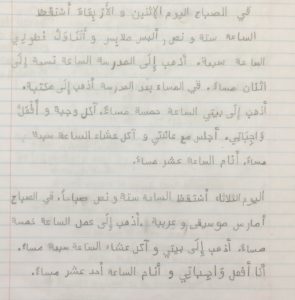 في الصباح اليوم الإثنين و الأربعاء أستقظ
الساعة ستة و نص، ألبس ملابس و أتناول فطوري
الساعة سبعة. أذهب إلى المدرسة الساعة نسبة إلى
اثنان مساءً. في المساء بعد المدرسة أذهب إلى مكتبة.
أذهب إلى بيتي الساعة خمسة مساءً. آكل وجبة و أفعل
واجباتي. أجلس مع عائلتي و آكل عشاء الساعة سبعة
مساءً. أنام الساعة عشر مساءً.
اليوم الثلاثاء أستقظ الساعة ستة و نص صباحاً. في الصباح
أمارس موسيقى و عربية. أذهب إلى عمل الساعة خمسة
مساءً. أذهب إلى بيتي و آكل عشاء الساعة سبعة مساءً.
أنا أفعل واجباتي و أنام الساعة أحد عشر مساءً.